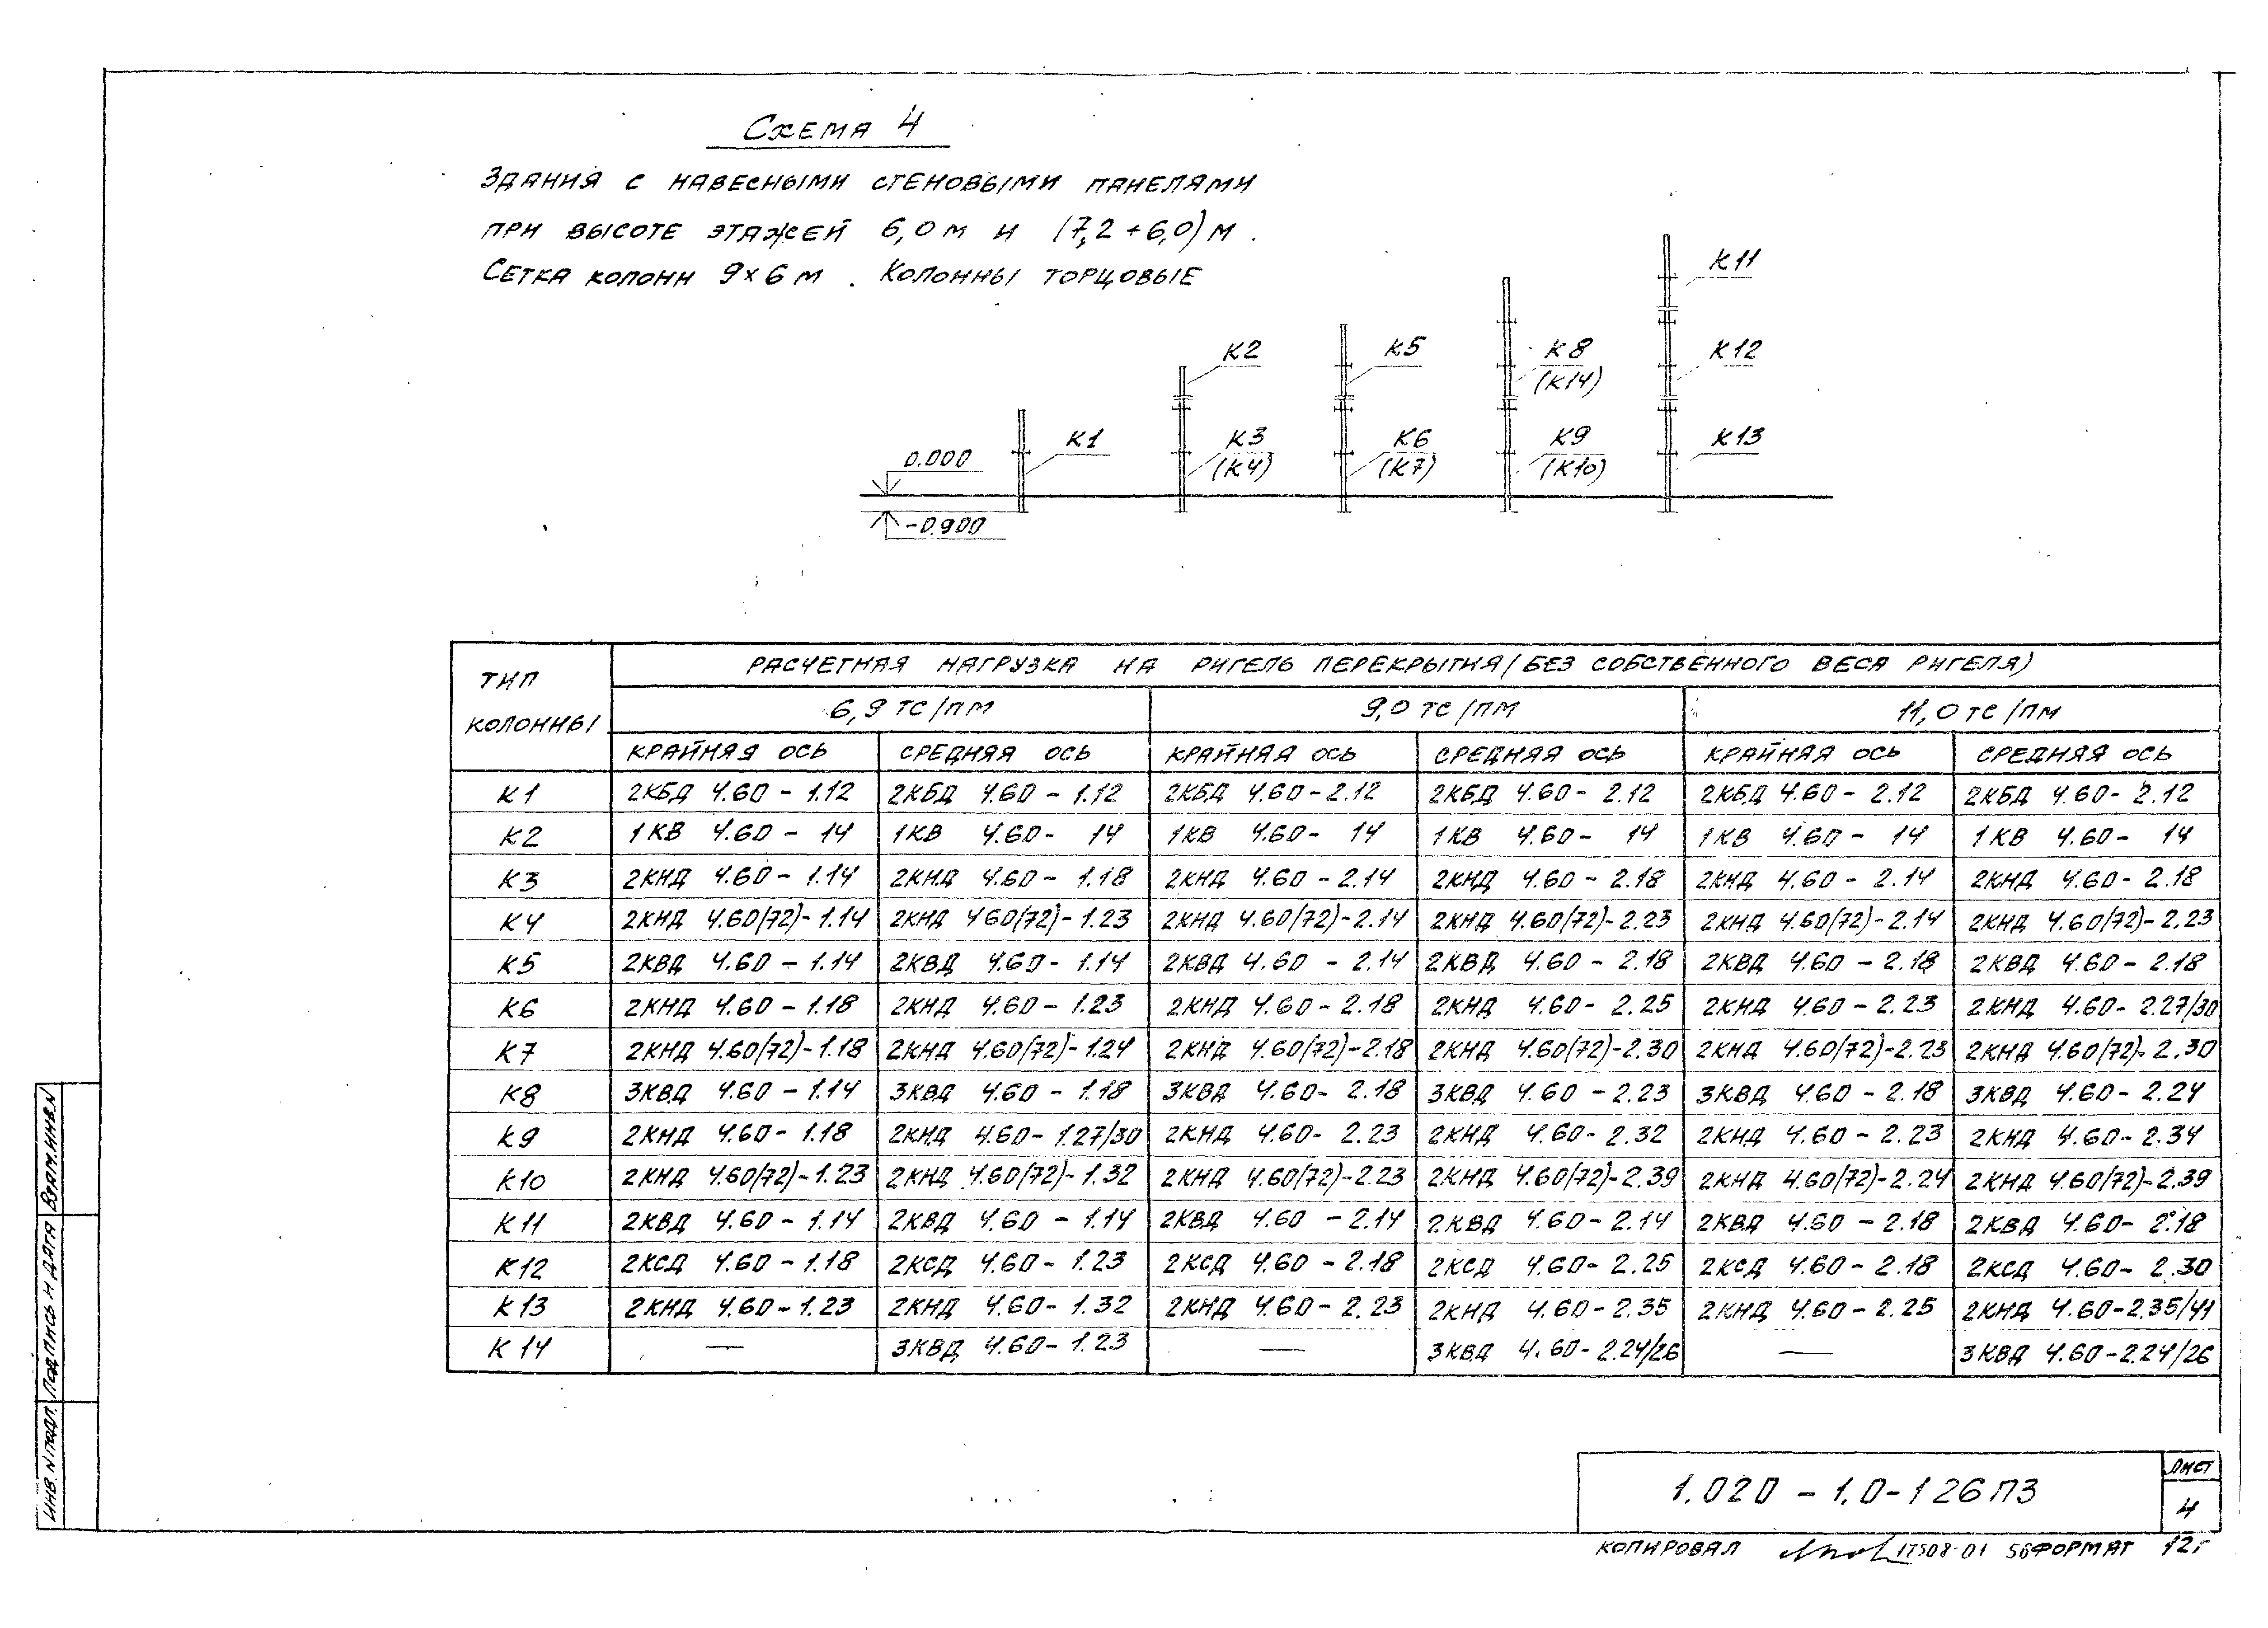 Схема 4
Здания с навесными стеновыми панелями
при высоте этажей 6,0 м и (7,2 + 6,0) м.
Сетка колонн 9×6 м. Колонны торцовые
К11
К2 К5 К8 К12
(К14)
К1 К3 К6 К9 К13
0.000 (К4) (К7) (К10)
-0.900
Тип колонны Расчетная нагрузка на ригель перекрытия (без собственного веса ригеля)
6,9 тс/пм 9,0 тс/пм 11,0 тс/пм
крайняя ось средняя ось крайняя ось средняя ось крайняя ось средняя ось
К1 2КБД 4.60 - 1.12 2КБД 4.60 - 1.12 2КБД 4.60 - 2.12 2КБД 4.60 - 2.12 2КБД 4.60 - 2.12 2КБД 4.60 - 2.12
К2 1КВ 4.60 - 14 1КВ 4.60 - 14 1КВ 4.60 - 14 1КВ 4.60 - 14 1КВ 4.60 - 14 1КВ 4.60 - 14
К3 2КНД 4.60 - 1.14 2КНД 4.60 - 1.18 2КНД 4.60 - 2.14 2КНД 4.60 - 2.18 2КНД 4.60 - 2.14 2КНД 4.60 - 2.18
К4 2КНД 4.60(72) - 1.14 2КНД 4.60(72) - 1.23 2КНД 4.60(72) - 2.14 2КНД 4.60(72) - 2.23 2КНД 4.60(72) - 2.14 2КНД 4.60(72) - 2.23
К5 2КВД 4.60 - 1.14 2КВД 4.60 - 1.14 2КВД 4.60 - 2.14 2КВД 4.60 - 2.18 2КВД 4.60 - 2.18 2КВД 4.60 - 2.18
К6 2КНД 4.60 - 1.18 2КНД 4.60 - 1.23 2КНД 4.60 - 2.18 2КНД 4.60 - 2.25 2КНД 4.60 - 2.23 2КНД 4.60 - 2.27/30
К7 2КНД 4.60(72) - 1.18 2КНД 4.60(72) - 1.24 2КНД 4.60(72) - 2.18 2КНД 4.60(72) - 2.30 2КНД 4.60(72) - 2.23 2КНД 4.60(72) - 2.30
К8 3КВД 4.60 - 1.14 3КВД 4.60 - 1.18 3КВД 4.60 - 2.18 3КВД 4.60 - 2.23 3КВД 4.60 - 2.18 3КВД 4.60 - 2.24
К9 2КНД 4.60 - 1.18 2КНД 4.60 - 1.27/30 2КНД 4.60 - 2.23 2КНД 4.60 - 2.32 2КНД 4.60 - 2.23 2КНД 4.60 - 2.34
К10 2КНД 4.60(72) - 1.23 2КНД 4.60(72) - 1.32 2КНД 4.60(72) - 2.23 2КНД 4.60(72) - 2.39 2КНД 4.60(72) - 2.24 2КНД 4.60(72) - 2.39
К11 2КВД 4.60 - 1.14 2КВД 4.60 - 1.14 2КВД 4.60 - 2.14 2КВД 4.60 - 2.14 2КВД 4.60 - 2.18 2КВД 4.60 - 2.18
К12 2КСД 4.60 - 1.18 2КСД 4.60 - 1.23 2КСД 4.60 - 2.18 2КСД 4.60 - 2.25 2КСД 4.60 - 2.18 2КСД 4.60 - 2.30
К13 2КНД 4.60 - 1.23 2КНД 4.60 - 1.32 2КНД 4.60 - 2.23 2КНД 4.60 - 2.35 2КНД 4.60 - 2.25 2КНД 4.60 - 2.35/41
К14 — 3КВД 4.60 - 1.23 — 3КВД 4.60 - 2.24/26 — 3КВД 4.60 - 2.24/26
Инв. N подл. Подпись и дата Взам. инв. N
1.020 - 1.0 - 1 26 ПЗ
Лист
4
Копировал 17508-01 56 Формат 12г